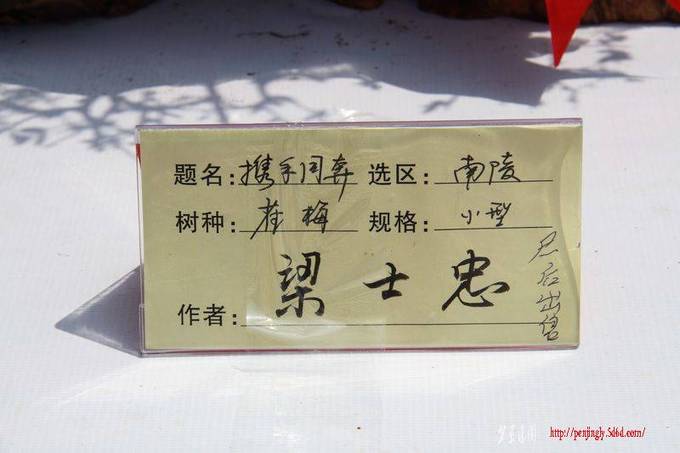 题名:携手同奔 选区:南陵
树种:雀梅 规格:小型
作者:梁士忠
展后出售
http://penjingly.5d6d.com/